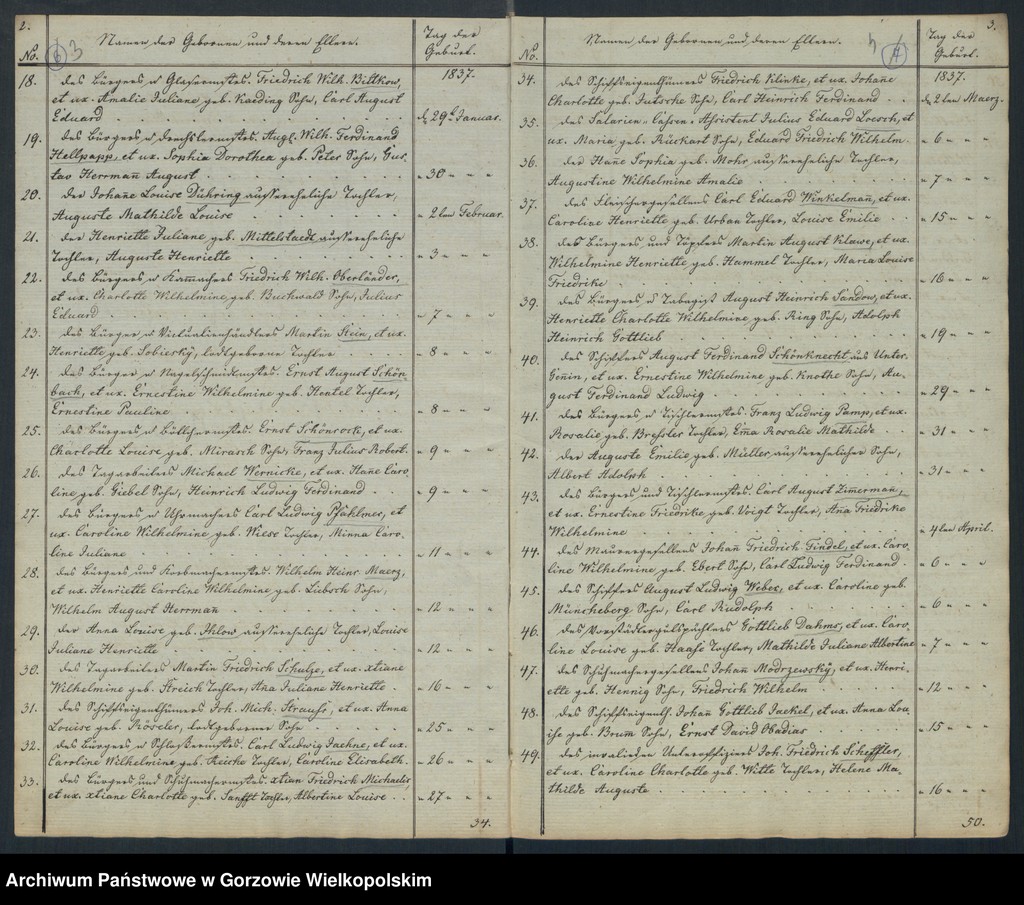 2.
3
No.
Namen der Gebornen und deren Eltern.
Tag der
Geburt.
1837.
18. des Bürgers u Glasermstrs. Friedrich Wilh. Bittkow,
et ux. Amalie Juliane geb. Kaeding Sohn, Carl August
Eduard
d. 29t. Januar.
19. des Bürgers u Drechslermstrs. Augt. Wilh. Ferdinand
Hellpapp, et ux. Sophia Dorothea geb. Peter Sohn, Gus-
tav Herrmañ August
" 30 " "
20. der Johañe Louise Dühring aussereheliche Tochter,
Auguste Mathilde Louise
" 2ten Februar.
21. der Henriette Juliane geb. Mittelstaedt aussereheliche
Tochter, Auguste Henriette
" 3 " "
22. des Bürgers u Kammachers Friedrich Wilh. Oberländer,
et ux. Charlotte Wilhelmine geb. Buchwald Sohn, Julius
Eduard
" 7 " "
23. des Bürger u Victualienhändlers Martin Stein, et ux.
Henriette geb. Sobiesky, todtgeborne Tochter
" 8 " "
24. des Bürger u Nagelschmiedmstrs. Ernst August Schön-
bach, et ux. Ernestine Wilhelmine geb. Hentel Tochter,
Ernestine Pauline
" 8 " "
25. des Bürgers u Böttchermstrs. Ernst Schönrock, et ux.
Charlotte Louise geb. Mirasch Sohn, Franz Julius Robert.
" 9 " "
26. des Tagarbeiters Michael Wernicke, et ux. Hañe Caro-
line geb. Giebel Sohn, Heinrich Ludwig Ferdinand
" 9 " "
27. des Bürgers u Uhrmachers Carl Ludwig Pfahlmer, et
ux. Caroline Wilhelmine geb. Wiese Tochter, Minna Caro-
line Juliane
" 11 " "
28. des Bürgers und Korbmachermstrs. Wilhelm Heinr. Maerz,
et ux. Henriette Caroline Wilhelmine geb. Liebsch Sohn,
Wilhelm August Herrman
" 12 " "
29. der Anna Louise geb. Ihlow aussereheliche Tochter, Louise
Juliane Henriette
" 12 " "
30. des Tagarbeiters Martin Friedrich Schulze, et ux. xtiane
Wilhelmine geb. Streich Tochter, Aña Juliane Henriette
" 16 " "
31. des Schiffseigenthümers Joh. Mich. Strauss, et ux. Anna
Louise geb. Röseler, todtgeborner Sohn
" 25 " "
32. des Bürgers u Schlossermstrs. Carl Ludwig Jaehne, et ux.
Caroline Wilhelmine geb. Reiske Tochter, Caroline Elisabeth.
" 26 " "
33. des Bürgers und Schuhmachermstrs. xtian Friedrich Michaelis,
et ux. xtiane Charlotte geb. Sanfft Tochter, Albertine Louise
" 27 " "
34.
3.
4
No.
Namen der Gebornen und deren Eltern.
Tag der
Geburt.
1837.
34. des Schiffseigenthümers Friedrich Klinke, et ux. Johañe
Charlotte geb. Jutsche Sohn, Carl Heinrich Ferdinand
d. 2ten Maerz.
35. des Salarien-Cassen-Assistent Julius Eduard Loesch, et
ux. Maria geb. Rückart Sohn, Eduard Friedrich Wilhelm.
" 6 " "
36. der Hañe Sophia geb. Mohr aussereheliche Tochter,
Augustine Wilhelmine Amalie
" 7 " "
37. des Fleischergesellens Carl Eduard Winkelmañ, et ux.
Caroline Henriette geb. Urban Tochter, Louise Emilie
" 15 " "
38. des Bürgers und Töpfers Martin August Klawe, et ux.
Wilhelmine Henriette geb. Hummel Tochter, Maria Louise
Friedrike
" 16 " "
39. des Bürgers u Tabagist August Heinrich Sandow, et ux.
Henriette Charlotte Wilhelmine geb. Ring Sohn, Adolph
Heinrich Gottlieb
" 19 " "
40. des Schäfers August Ferdinand Schönknecht aus Unter-
Gennin, et ux. Ernestine Wilhelmine geb. Knothe Sohn, Au-
gust Ferdinand Ludwig
" 29 " "
41. des Bürgers u Tischlermstrs. Franz Ludwig Pamp, et ux.
Rosalie geb. Bressler Tochter, Em̃a Rosalie Mathilde
" 31 " "
42. der Auguste Emilie geb. Müller, ausserehelicher Sohn,
Albert Adolph
" 31 " "
43. des Bürgers und Tischlermstrs. Carl August Zim̃erman̄,
et ux. Ernestine Friedrike geb. Voigt Tochter, Aña Friedrike
Wilhelmine
" 4ten April.
44. des Maurergesellens Johañ Friedrich Findel, et ux. Caro-
line Wilhelmine geb. Ebert Sohn, Carl Ludwig Ferdinand
" 6 " "
45. des Schiffers August Ludwig Weber, et ux. Caroline geb.
Müncheberg Sohn, Carl Rudolph
" 6 " "
46. des Vorstädtergutspächters Gottlieb Dahms, et ux. Caro-
line Louise geb. Haase Tochter, Mathilde Juliane Albertine
" 7 " "
47. des Schuhmachergesellens Johañ Modrzewsky, et ux. Henri-
ette geb. Hennig Sohn, Friedrich Wilhelm
" 12 " "
48. des Schiffseigenth. Johañ Gottlieb Jaekel, et ux. Anna Lou-
ise geb. Brum Sohn, Ernst David Obadias
" 15 " "
49. des invaliden Unteroffiziers Joh. Friedrich Scheffler,
et ux. Caroline Charlotte geb. Witte Tochter, Helene Ma-
thilde Auguste
" 16 " "
50.
Archiwum Państwowe w Gorzowie Wielkopolskim